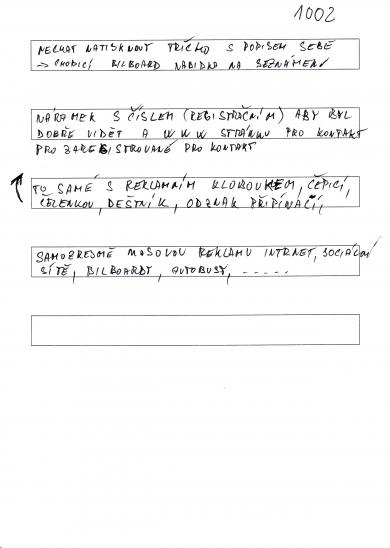 1002
NECHAT NATISKNOUT TRIČKO S POPISEM SEBE
→ CHODICÍ BILBOARD NABIDKA NA SEZNÁMENÍ
NÁRAMEK S ČÍSLEM (REGISTRAČNÍM) ABY BYL
DOBŘE VIDĚT A WWW STRÁNKU PRO KONTAKT
PRO ZAREGISTROVANÉ PRO KONTAKT
TO SAMÉ S REKLAMNÍM KLOBOUKEM, ČEPICÍ,
ČELENKOU, DEŠTNÍK, ODZNAK PŘIPÍNACÍ,
SAMOZREJMĚ MASOVOU REKLAMU INTRNET, SOCIÁLNÍ
SÍTĚ, BILBOARDY, AUTOBUSY, - - - - -